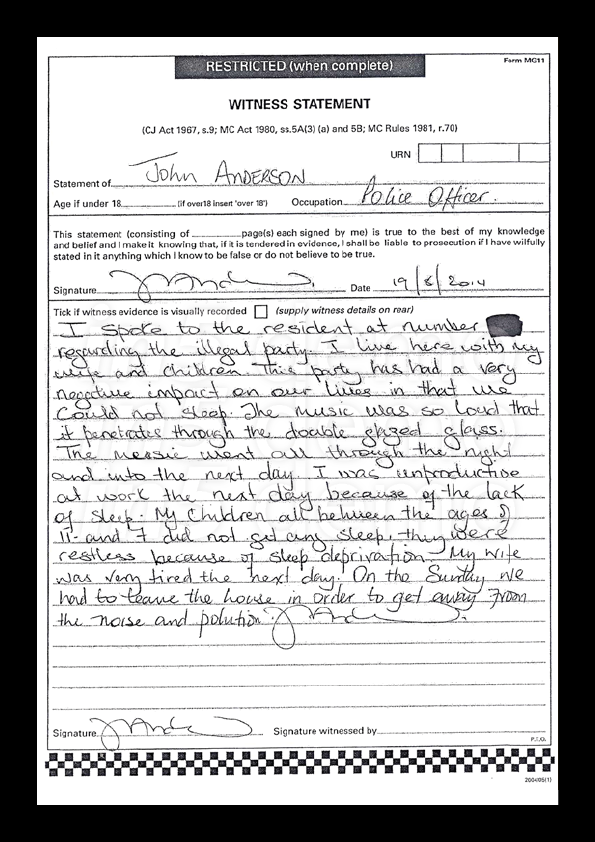 Form MG11
RESTRICTED (when complete)
WITNESS STATEMENT
(CJ Act 1967, s.9; MC Act 1980, ss.5A(3) (a) and 5B; MC Rules 1981, r.70)
URN
Statement of John ANDERSON
Age if under 18 (if over18 insert 'over 18') Occupation Police Officer.
This statement (consisting of page(s) each signed by me) is true to the best of my knowledge
and belief and I make it knowing that, if it is tendered in evidence, I shall be liable to prosecution if I have wilfully
stated in it anything which I know to be false or do not believe to be true.
Signature Date 19/6/2014
Tick if witness evidence is visually recorded (supply witness details on rear)
I spoke to the resident at number
regarding the illegal party. I live here with my
wife and children. This party has had a very
negative impact on our lives in that we
could not sleep. The music was so loud that
it penetrates through the double glazed glass.
The messic went all through the night
and into the next day. I was unproductive
at work the next day because of the lack
of sleep. My children all between the ages of
11 and 7 did not get any sleep, they were
restless because of sleep deprivation. My wife
was very tired the next day. On the Sunday we
had to leave the house in order to get away from
the noise and polution.
Signature Signature witnessed by
P.T.O.
2004/05(1)